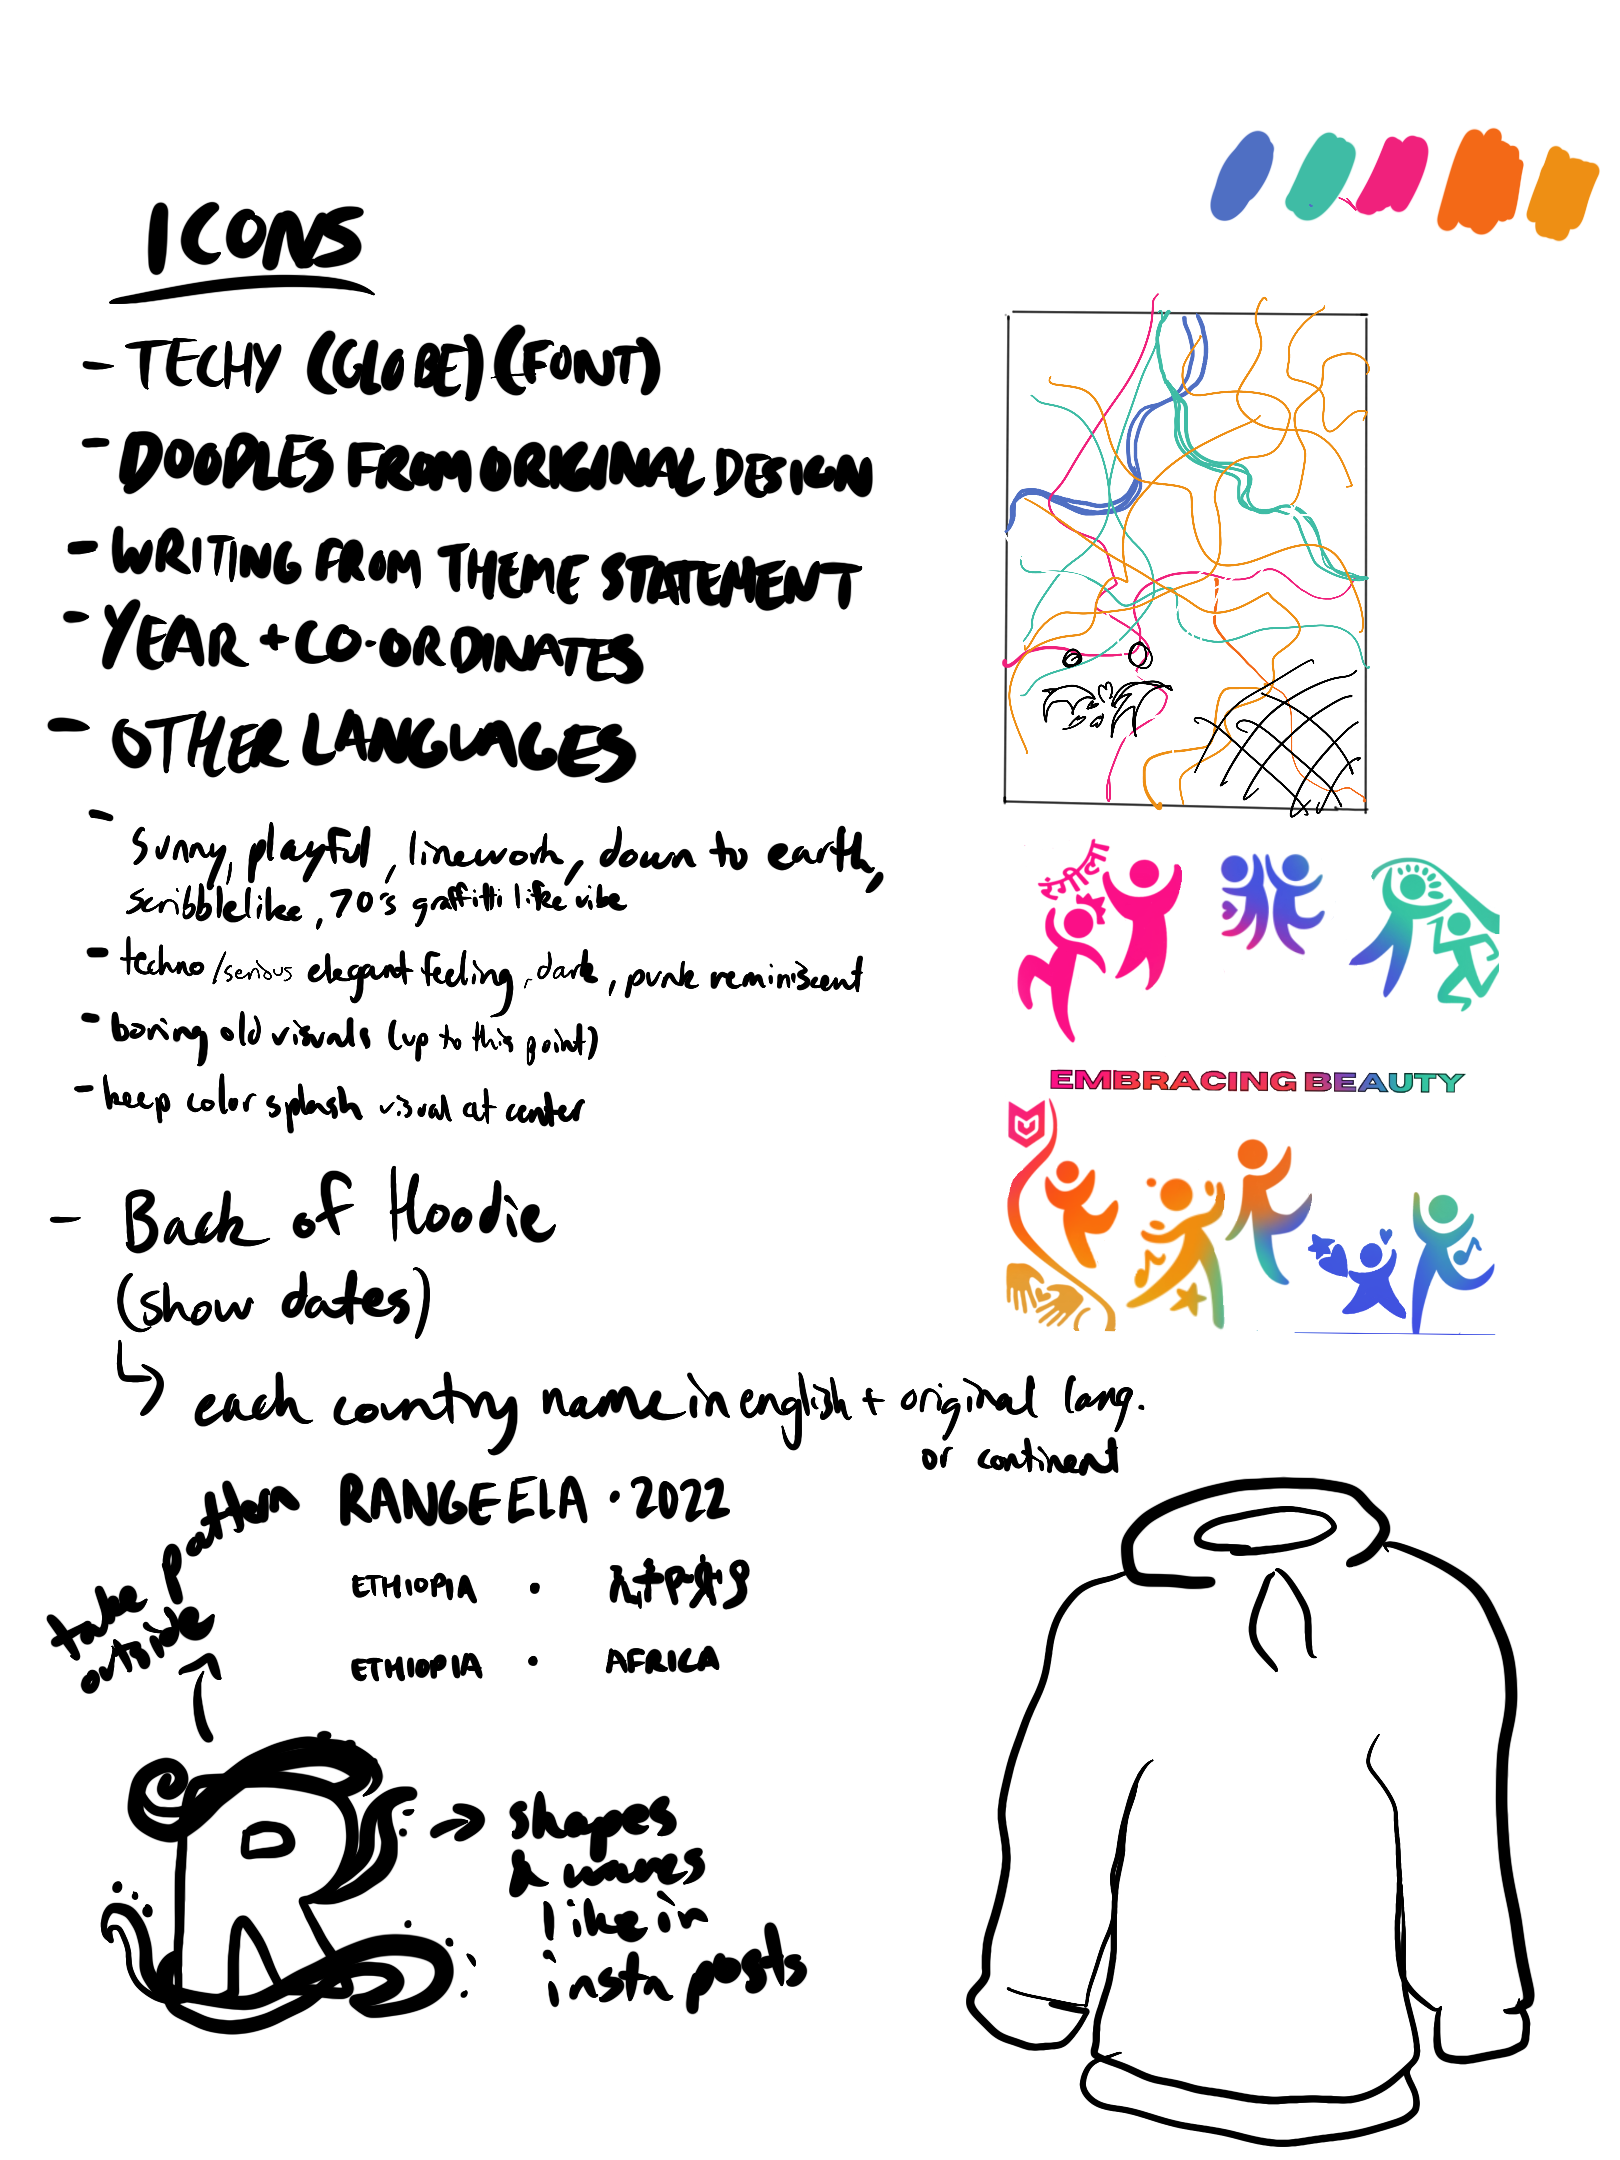 ICONS
- TECHY (GLOBE) (FONT)
- DOODLES FROM ORIGINAL DESIGN
- WRITING FROM THEME STATEMENT
- YEAR + CO-ORDINATES
- OTHER LANGUAGES
- sunny, playful, linework, down to earth,
scribblelike, 70's graffitti like vibe
- techno/serious elegant feeling, dark, punk reminiscent
- boring old visuals (up to this point)
- keep color splash visual at center
- Back of Hoodie
(show dates)
each country name in english + original lang.
or continent
RANGEELA · 2022
ETHIOPIA · ኢትዮጵያ
ETHIOPIA · AFRICA
take pattern
outside
R
shapes
& waves
like in
insta posts
रंगीला
EMBRACING BEAUTY